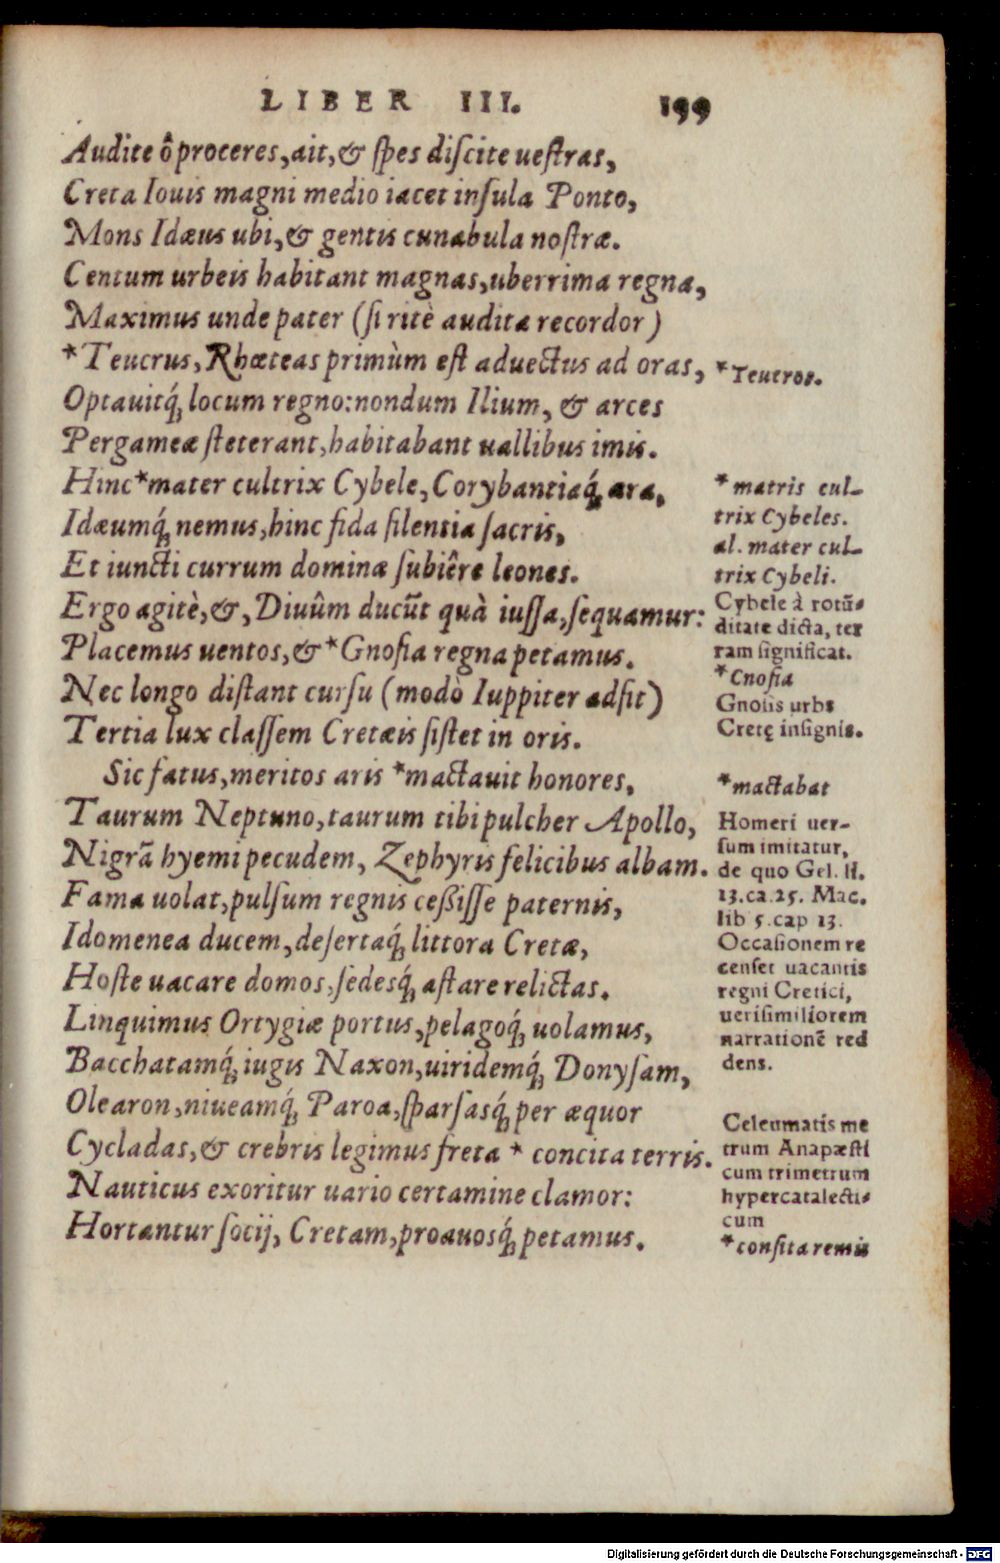 LIBER III. 199
Audite ô proceres, ait, & ſpes diſcite ueſtras,
Creta Iouis magni medio iacet inſula Ponto,
Mons Idæus ubi, & gentis cunabula noſtræ.
Centum urbeis habitant magnas, uberrima regna,
Maximus unde pater (ſi ritè audita recordor)
*Teucrus, Rhœteas primùm eſt aduectus ad oras,
*Teucros.
Optauitq́ꝫ locum regno: nondum Ilium, & arces
Pergameæ ſteterant, habitabant uallibus imis.
Hinc *mater cultrix Cybele, Corybantiaq́ꝫ æra,
Idæumq́ꝫ nemus, hinc fida ſilentia ſacris,
Et iuncti currum dominæ ſubiêre leones.
Ergo agitè, &, Diuûm ducũt quà iuſſa, ſequamur:
Placemus uentos, & *Gnoſia regna petamus.
Nec longo diſtant curſu (modò Iuppiter adſit)
Tertia lux claſſem Cretæis ſiſtet in oris.
*matris cul-
trix Cybeles.
al. mater cul-
trix Cybeli.
Cybele à rotũ-
ditate dicta, ter
ram ſignificat.
*Cnoſia
Gnoſis urbs
Cretę inſignis.
Sic fatus, meritos aris *mactauit honores,
Taurum Neptuno, taurum tibi pulcher Apollo,
Nigrã hyemi pecudem, Zephyris felicibus albam.
Fama uolat, pulſum regnis ceßiſſe paternis,
Idomenea ducem, deſertaq́ꝫ littora Cretæ,
Hoſte uacare domos, ſedesq́ꝫ aſtare relictas.
Linquimus Ortygiæ portus, pelagoq́ꝫ uolamus,
Bacchatamq́ꝫ iugis Naxon, uiridemq́ꝫ Donyſam,
*mactabat
Homeri uer-
ſum imitatur,
de quo Gel. li.
13. ca. 25. Mac.
lib 5. cap 13.
Occaſionem re
cenſet uacantis
regni Cretici,
ueriſimiliorem
narrationẽ red
dens.
Olearon, niueamq́ꝫ Paroa, ſparſasq́ꝫ per æquor
Cycladas, & crebris legimus freta * concita terris.
Nauticus exoritur uario certamine clamor:
Hortantur ſocij, Cretam, proauosq́ꝫ petamus.
Celeumatis me
trum Anapæſti
cum trimetrum
hypercatalecti-
cum
*conſita remis
Digitalisierung gefördert durch die Deutsche Forschungsgemeinschaft - DFG